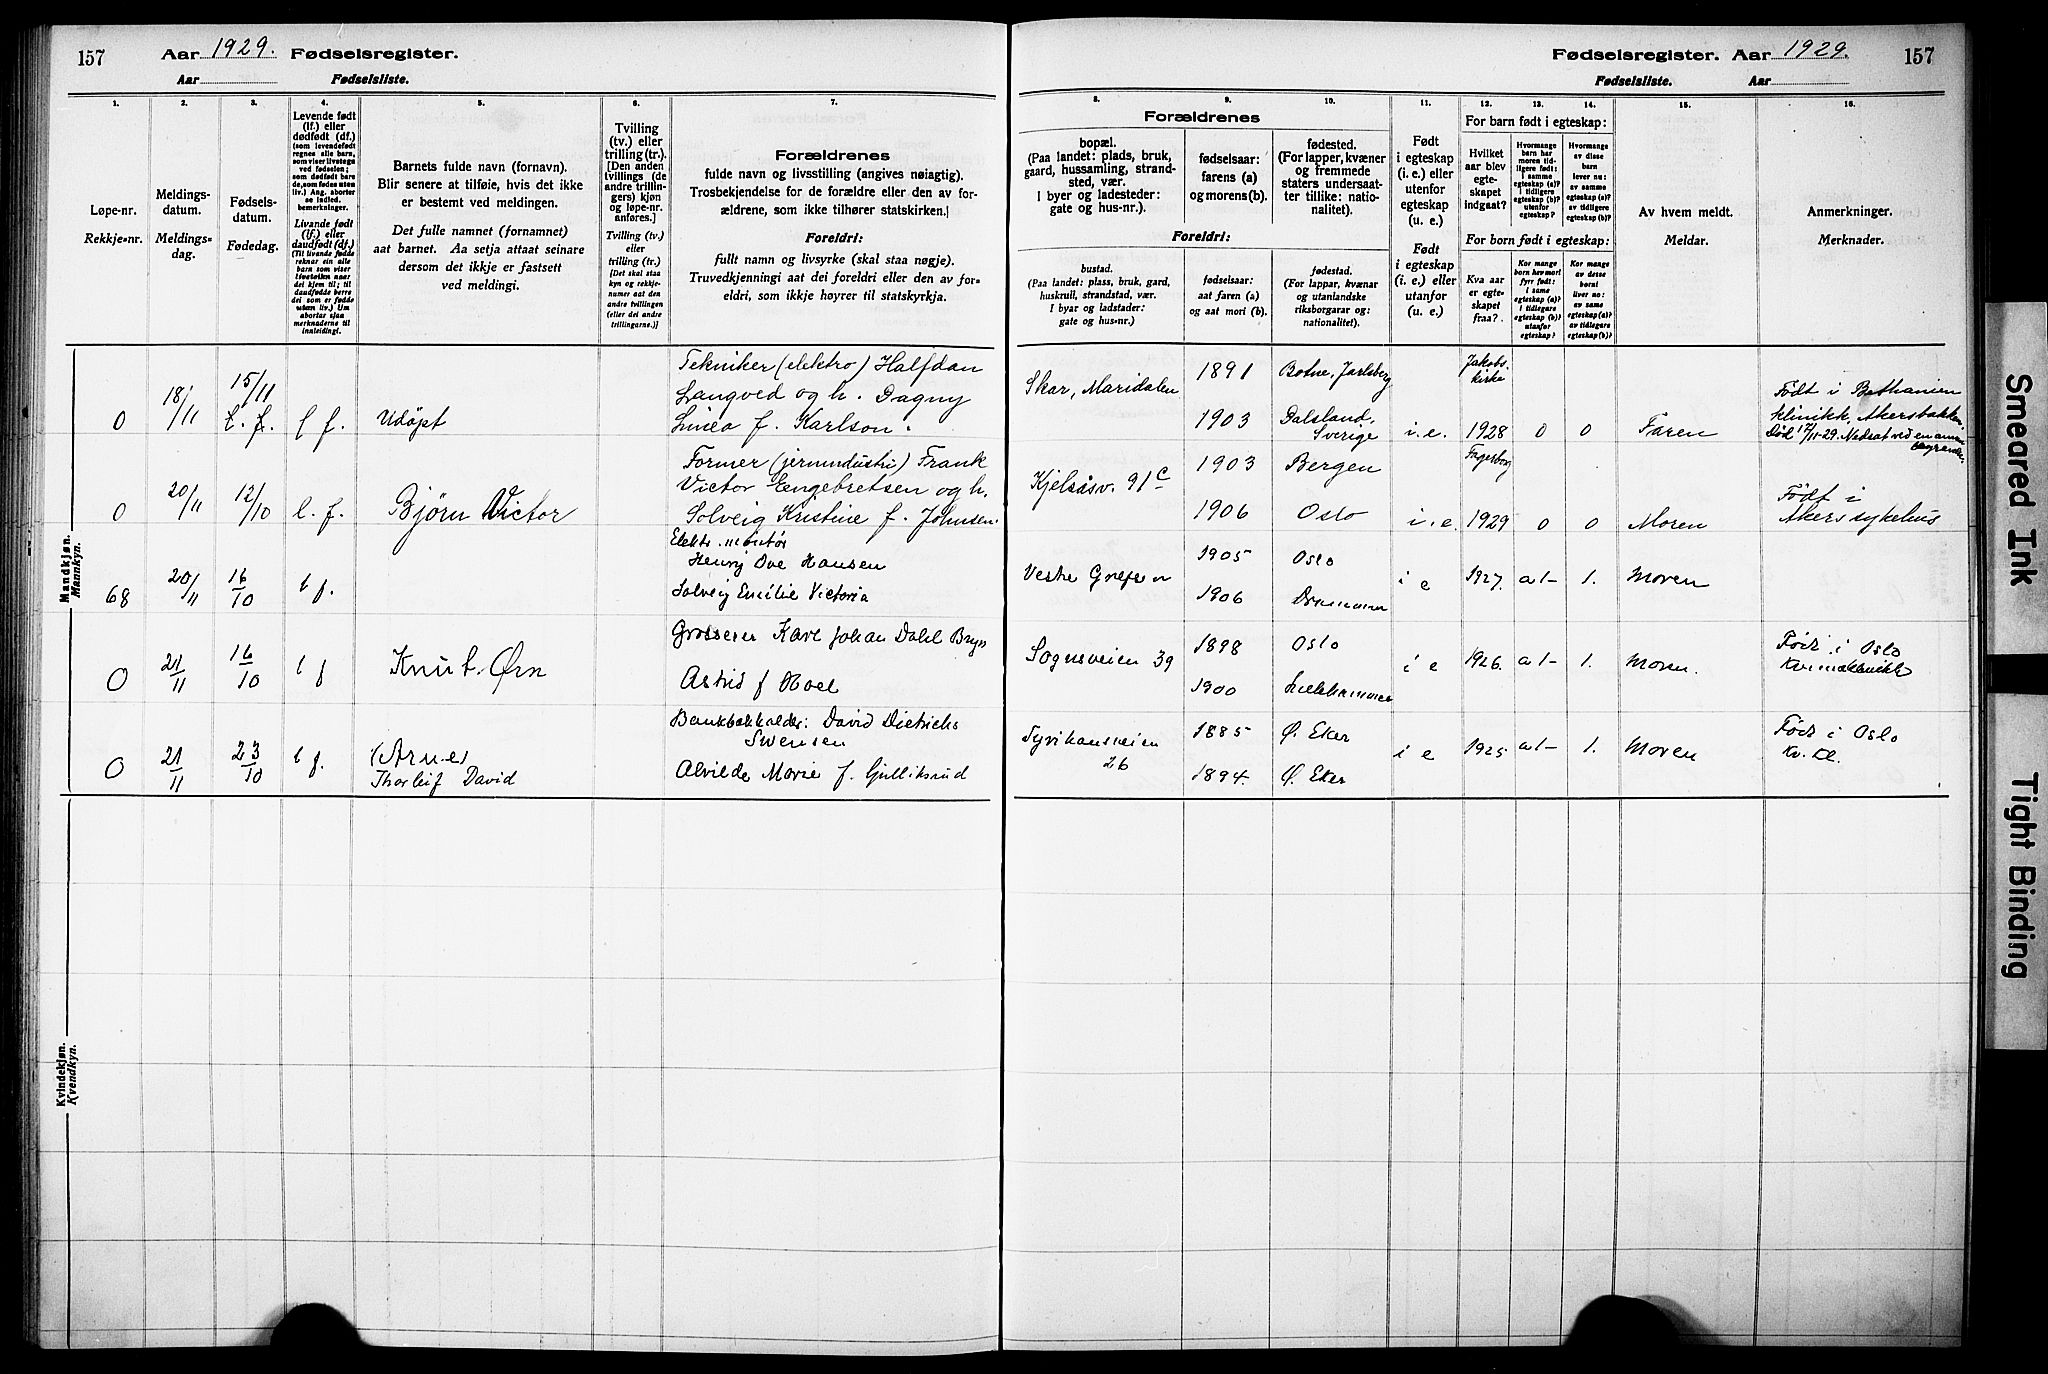 157 Aar 1929. Fødselsregister.
Aar Fødselsliste.
1. 2. 3. 4. 5. 6. 7.
Løpe-nr.
Rekkje-nr.
Meldings-
datum.
Meldings-
dag.
Fødsels-
datum.
Fødedag.
Levende født
(lf.) eller
dødfødt (df.)
(som levendefødt
regnes alle barn,
som viser livstegn
ved fødselen;
som dødfødt bare
de, som fødes uten
liv.) Ang. aborter
se indled.
bemerkninger.
Livande født
(lf.) eller
daudfødt (df.)
Barnets fulde navn (fornavn).
Blir senere at tilføie, hvis det ikke
er bestemt ved meldingen.
Det fulle namnet (fornamnet)
aat barnet. Aa setja attaat seinare
dersom det ikkje er fastsett
ved meldingi.
Tvilling
(tv.) eller
trilling (tr.)
[Den anden
tvillings (de
andre trillin-
gers) kjøn
og løpe-nr.
anføres.]
Tvilling (tv.)
eller
trilling (tr.)
[Det skal staa
kyn og rekkje-
numer aat den
andre tvillingen
(eller dei andre
trillingarne.)]
Forældrenes
fulde navn og livsstilling (angives nøiagtig).
Trosbekjendelse for de forældre eller den av for-
ældrene, som ikke tilhører statskirken.]
Foreldri:
fullt namn og livsyrke (skal staa nøgje).
Truvedkjenningi aat dei foreldri eller den av for-
eldri, som ikkje høyrer til statskyrkja.
Mandkjøn.
Mannkyn.
0 18/11 15/11 l. f. l f. Udøpt
Tekniker (elektro) Halfdan
Langved og h. Dagny
Linea f. Karlson.
0 20/11 12/10 l. f. Bjørn Victor
Former (jernindustri) Frank
Victor Engebretsen og h.
Solveig Kristine f. Johnsen.
68 20/11 16/10 l f.
Elektr. montør
Henry Ove Hansen
Solveig Emilie Victoria
0 21/11 16/10 l f Knut Ørn
Grosserer Karl Johan Dahl Bryn
Astrid f Hoel
0 21/11 23/10 l f. (Arne)
Thorleif David
Bankbokholder: David Dietrichs
Svensen
Alvilde Marie f. Gjulliksrud
Kvindekjøn.
Kvendkyn.
Fødselsregister. Aar 1929. 157
Fødselsliste. Aar
8. 9. 10. 11. 12. 13. 14. 15. 16.
Forældrenes
bopæl.
(Paa landet: plads, bruk,
gaard, hussamling, strand-
sted, vær.
I byer og ladesteder:
gate og hus-nr.).
fødselsaar:
farens (a)
og morens (b).
fødested.
(For lapper, kvæner
og fremmede
staters undersaat-
ter tillike: natio-
nalitet).
Foreldri:
bustad.
(Paa landet: plass, bruk, gard,
huskrull, strandstad, vær.
I byar og ladstader:
gate og hus-nr.)
fødselsaar:
aat faren (a)
og aat mori (b).
fødestad.
(For lappar, kvænar
og utanlandske
riksborgarar og:
nationalitet).
Født
i egteskap
(i. e.) eller
utenfor
egteskap
(u. e.)
Født
i egteskap
(i. e.) eller
utanfor
(u. e.)
For barn født i egteskap:
Hvilket
aar blev
egte-
skapet
indgaat?
Hvormange
barn har
moren tid-
ligere født:
i samme
egteskap (a)?
i tidligere
egteskap (b)?
utenfor
egteskap?
Hvormange
av disse
barn
lever nu:
av samme
egteskap (a)?
av tidligere
egteskap (b)?
For born født i egteskap:
Kva aar
er egte-
skapet
fraa?
Kor mange
born hev mori
fyrr født:
i same
egteskap (a)?
i tidlegare
egteskap (b)?
utanfor
egteskap?
Kor mange
av desse
borni
liver no:
av same
egteskap (a)?
av tidlegare
egteskap (b)?
Av hvem meldt.
Meldar.
Anmerkninger.
Merknader.
Skar, Maridalen 1891 Botne, Jarlsberg Jakobs
kirke
1903 Dalsland,
Sverige i. e. 1928 0 0 Faren
Født i Bethanien
klinikk, Akersbakken.
Død 17/11-29. Nedsat ved en annen
begravelse.
Kjelsåsv. 91c 1903 Bergen Fagerborg
1906 Oslo i. e. 1929 0 0 Moren Født i
Akers sykehus
Vestre Grefsen 1905 Oslo
1906 Drammen i e 1927. a 1- 1. Moren
Sognsveien 39 1898 Oslo
1900 Lillehammer i e 1926. a 1- 1. Moren.
Født i Oslo
Kvinneklinikk
Tyrihansveien
26
1885 Ø. Eker
1894. Ø. Eker i e 1925 a 1- 1. Moren
Født i Oslo
Kv. kl.
Smeared Ink
Tight Binding